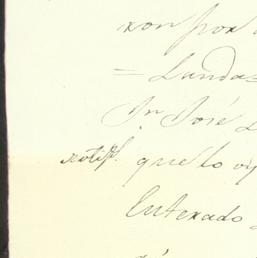 ron por
= Landa=
Dn. José
notifl. que lo oy
Enterado